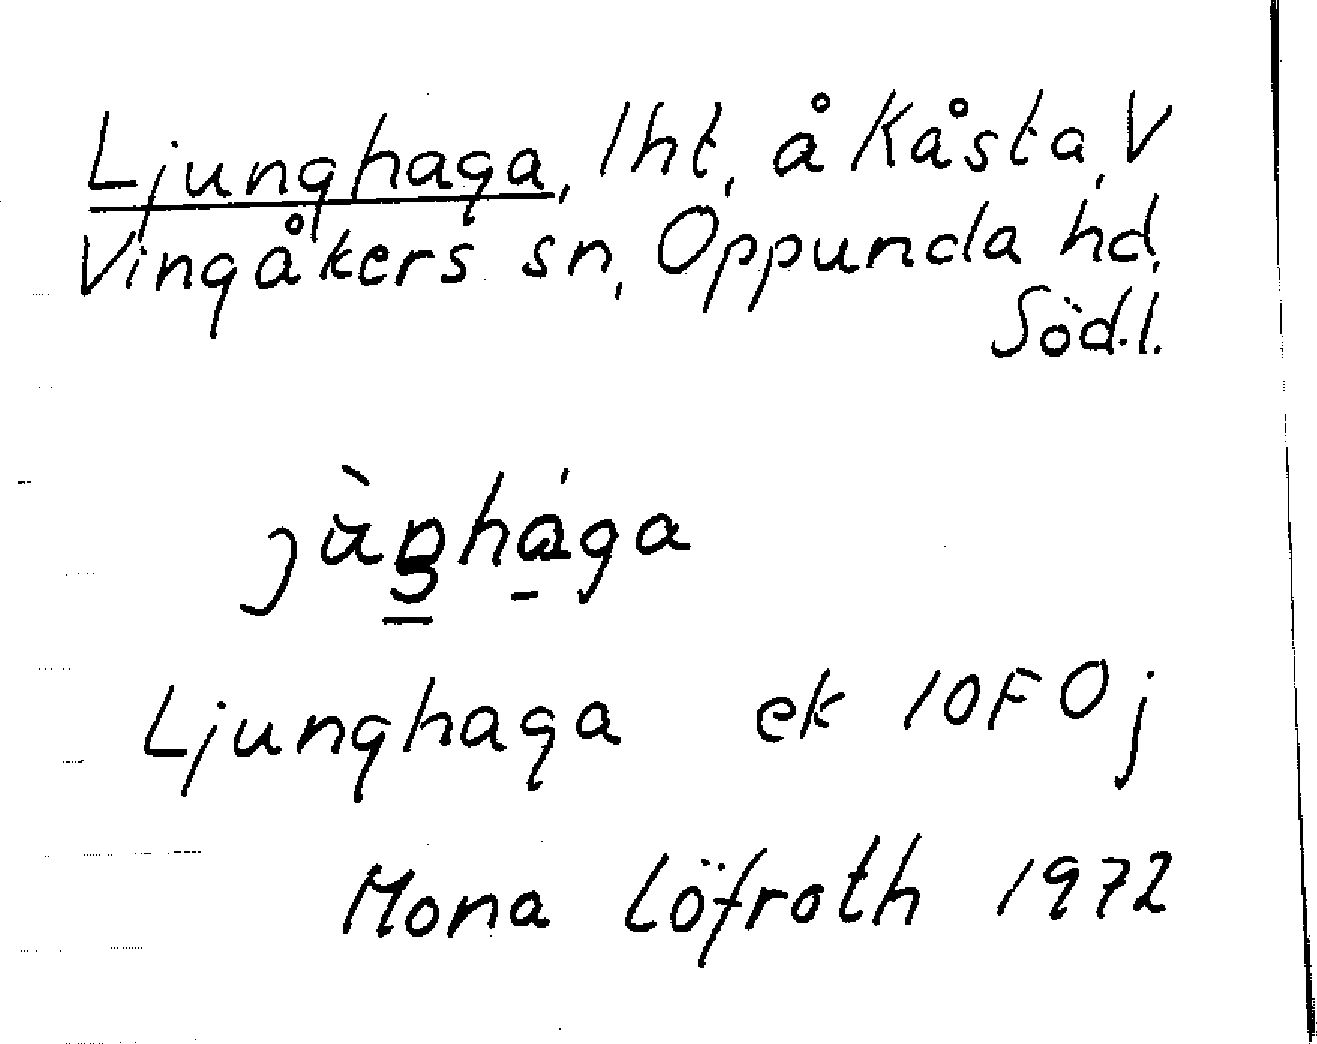 Ljunghaga, lht, å Kåsta, V
Vingåkers sn, Oppunda hd,
Söd.l.
Ljunghaga ek 10F 0j
Mona Löfroth 1972